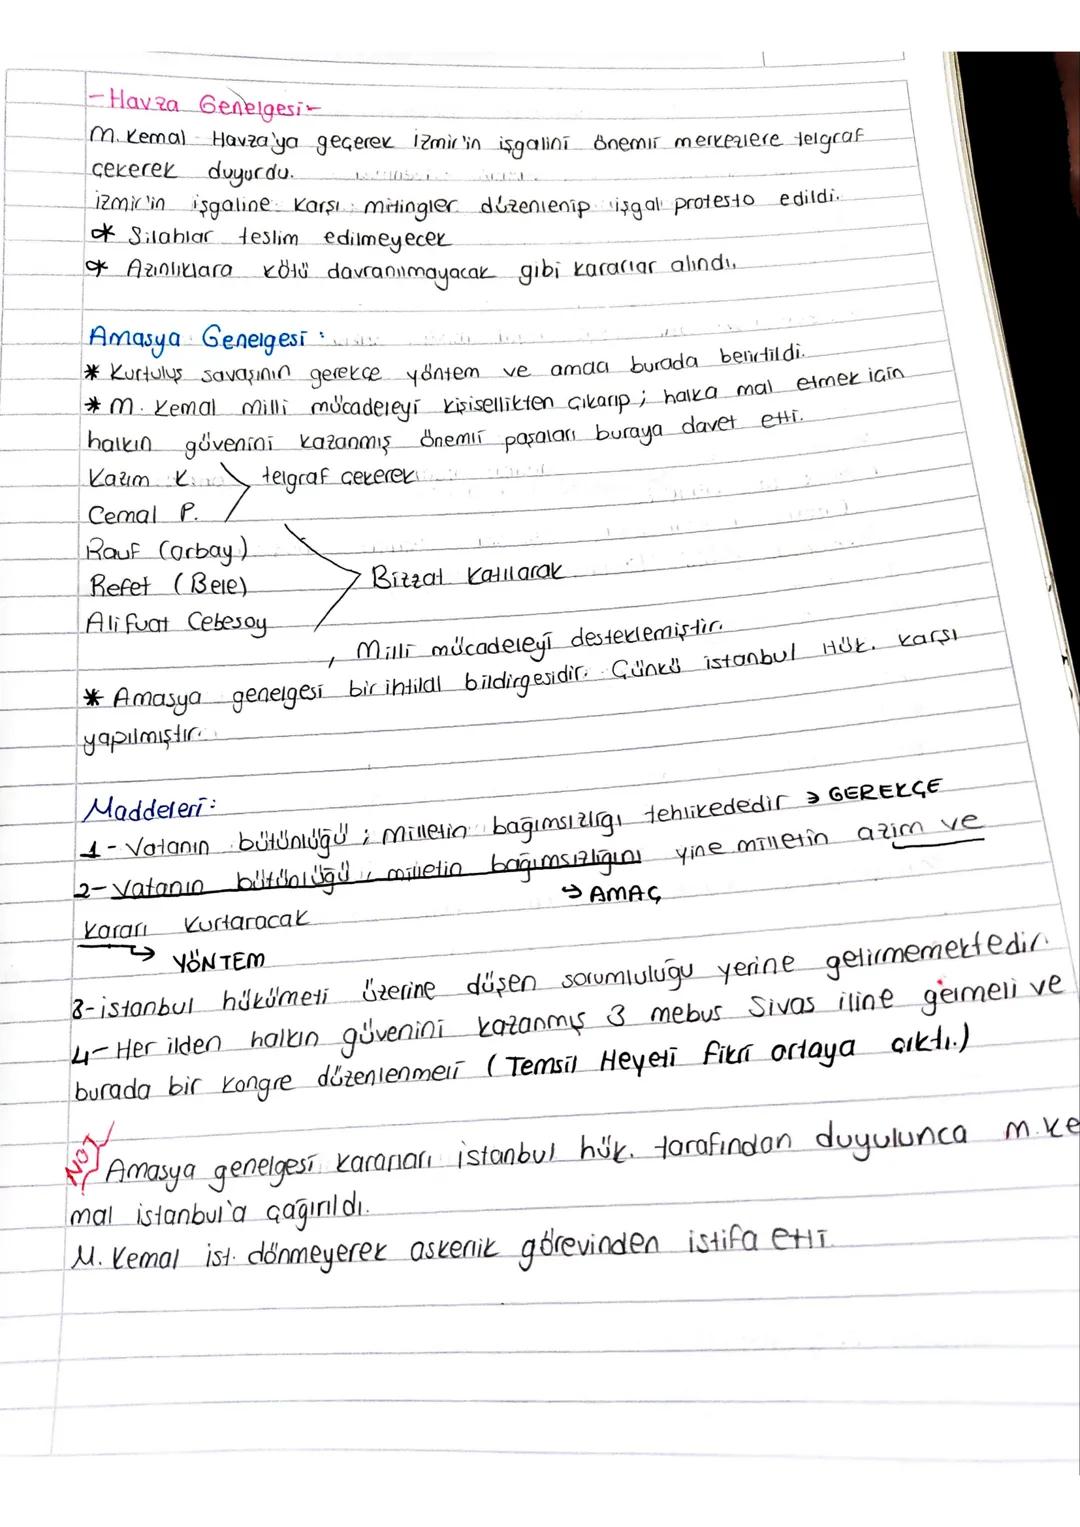 -Havza Genelgesi-
M. Kemal Havza'ya geçerek izmir'in işgalini önemli merkezlere telgraf
çekerek duyurdu.
izmir'in işgaline karşı mitingler düzenlenip işgal protesto edildi.
* Silahlar teslim edilmeyecek
* Azınlıklara kötü davranılmayacak gibi kararlar alındı.
Amasya Genelgesi :
* Kurtuluş savaşının gerekçe yöntem ve amacı burada belirtildi.
* M. Kemal milli mücadeleyi kişisellikten çıkarıp ; halka mal etmek için
halkın güvenini kazanmış önemli paşaları buraya davet etti.
Kazım K. telgraf çekerek
Cemal P.
Rauf (orbay)
Refet (Bele) Bizzat katılarak
Ali fuat Cebesoy
, Milli mücadeleyi desteklemiştir.
* Amasya genelgesi bir ihtilal bildirgesidir. Çünkü istanbul Hük. karşı
yapılmıştır.
Maddeleri:
1- Vatanın bütünlüğü ; milletin bağımsızlığı tehlikededir → GEREKÇE
2- Vatanın bütünlüğü, milletin bağımsızlığını yine milletin azim ve
↳ AMAÇ
kararı kurtaracak
↳ YÖNTEM
3- istanbul hükümeti üzerine düşen sorumluluğu yerine getirmemektedir.
4- Her ilden halkın güvenini kazanmış 3 mebus Sivas iline gelmeli ve
burada bir kongre düzenlenmeli (Temsil Heyeti fikri ortaya çıktı.)
NOT
Amasya genelgesi kararları istanbul hük. tarafından duyulunca m.ke
mal istanbul'a çağırıldı.
M. Kemal ist. dönmeyerek askerlik görevinden istifa etti.